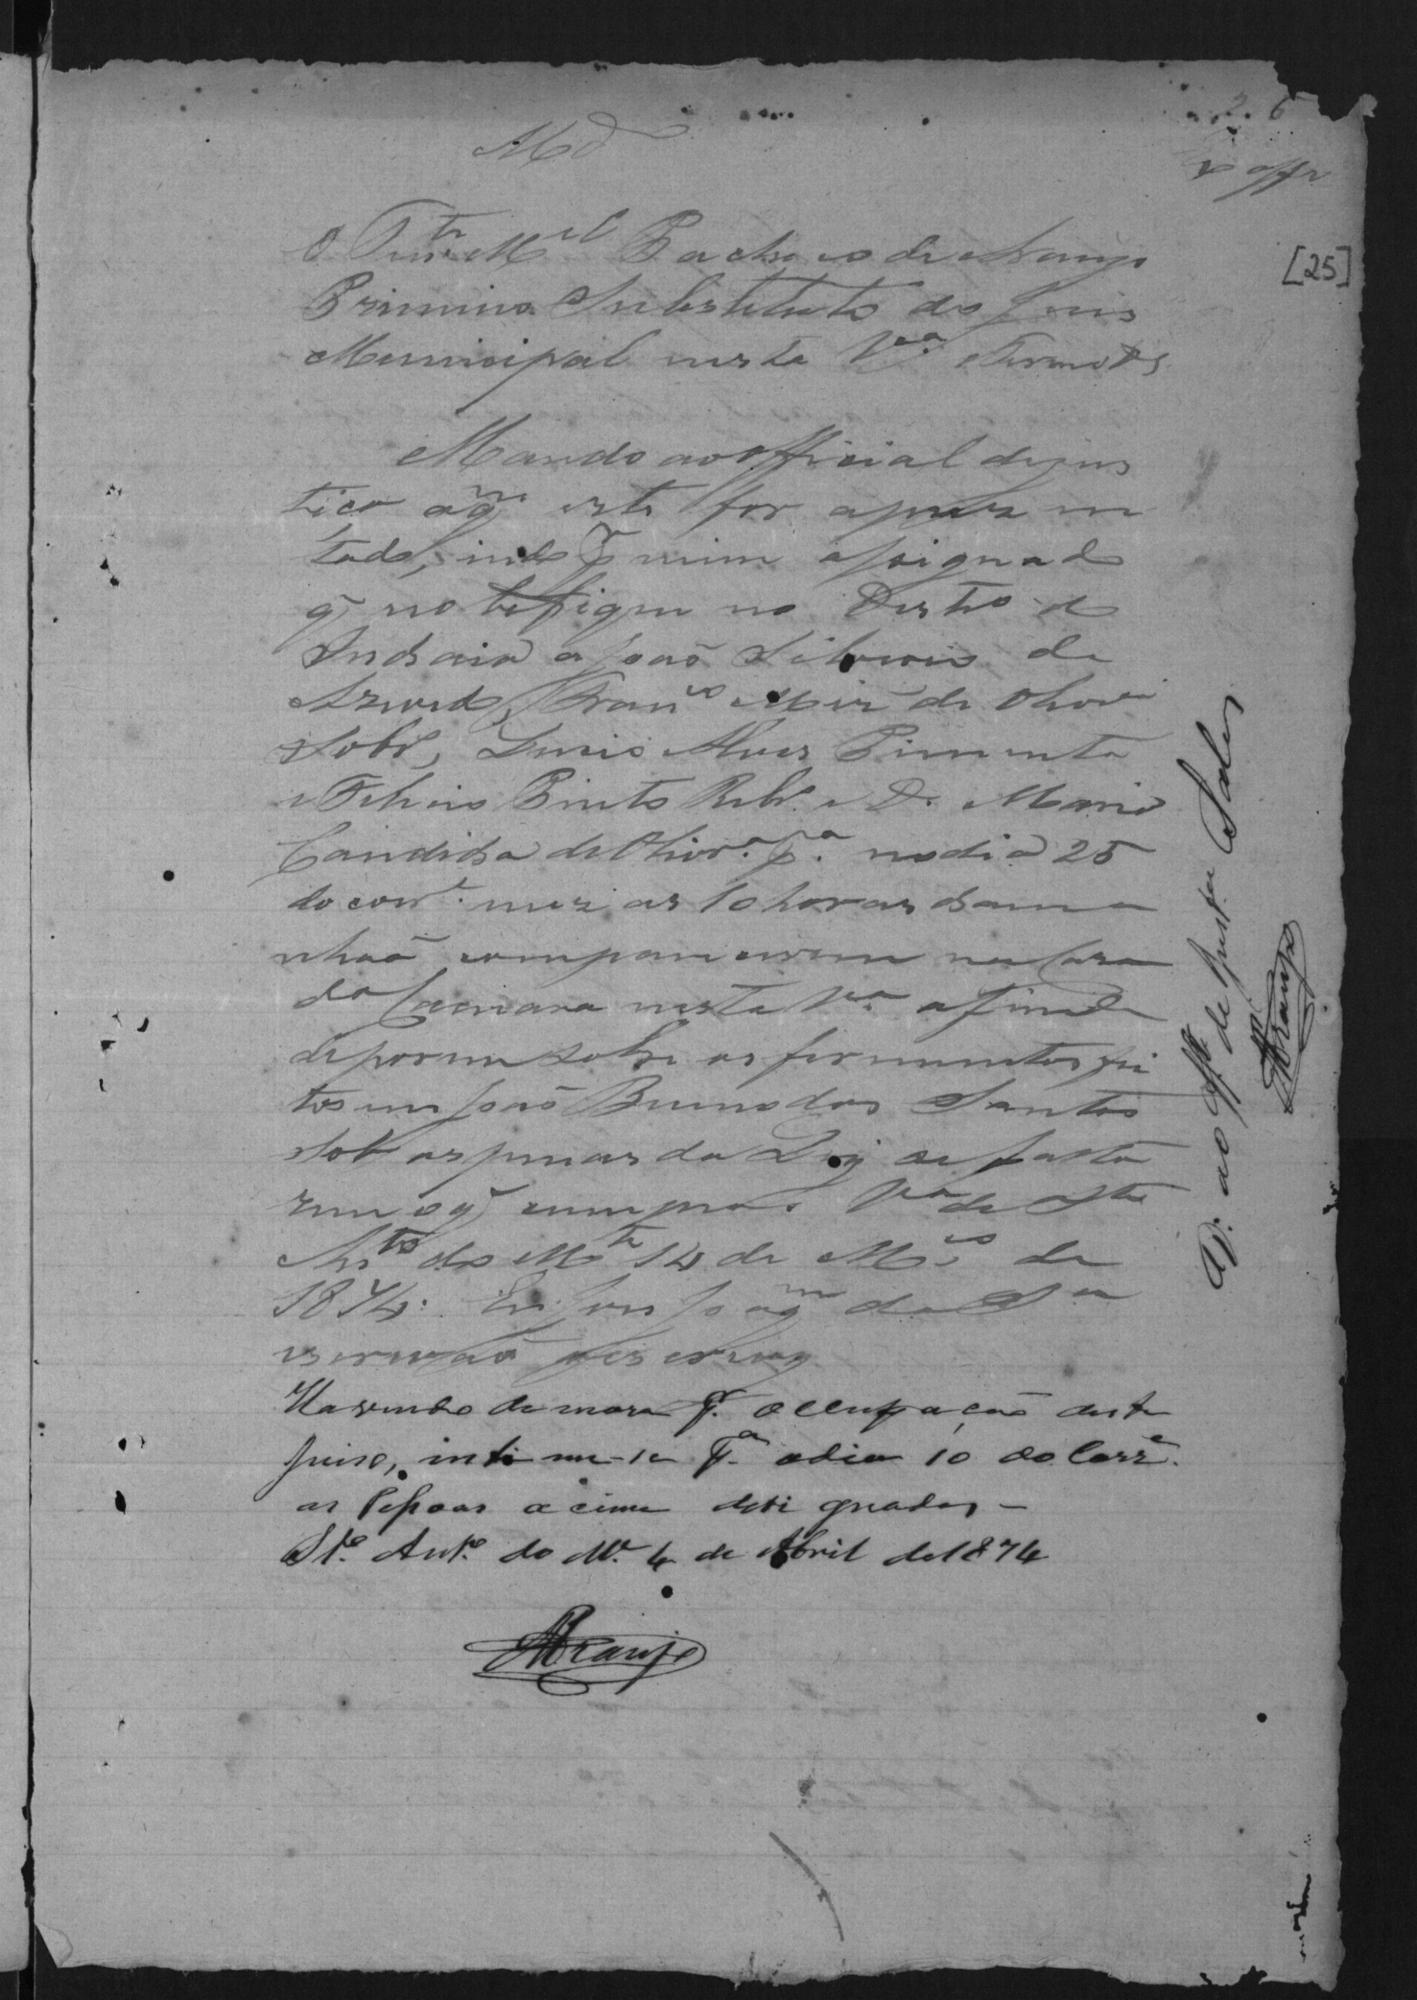 26
Ex offo
[25]
Mdo
O Tente Mel Pacheco de Araujo
Primeiro Substituto do Juis
Municipal nesta Va e Termo &
Mando ao official de jus
tica a qm este for aprezen
tado, indo pr mim assignado
q̃ notefique no Destro de
Indaia a João Liborio de
Azevedo, Franco de Olivra
Sobro, Luis Alves Pimenta
e Felicio Pinto Ribro e D. Maria
Candida de Olivra pa no dia 25
do corre mez as 10 horas da ma
nhaã comparecerem na Casa
da Camara nesta Va afim de
deporem sobre os ferimentos fei
tos em João Bruno dos Santos
sob as penas da Ley se falta
rem o q̃ cumpra. Va de Sto
Anto do Mte 14 de Mço de
1874. Eu Joaqm da Sa
escrivão q escrevy
Havendo demora pr occupação deste
Juiso, intime-se pa o dia 10 do Corre
as Pessoas acima designadas –
Sto Anto do Me 4 de Abril de 1874
Araujo
D. ao Offal de Justa Sales
Araujo